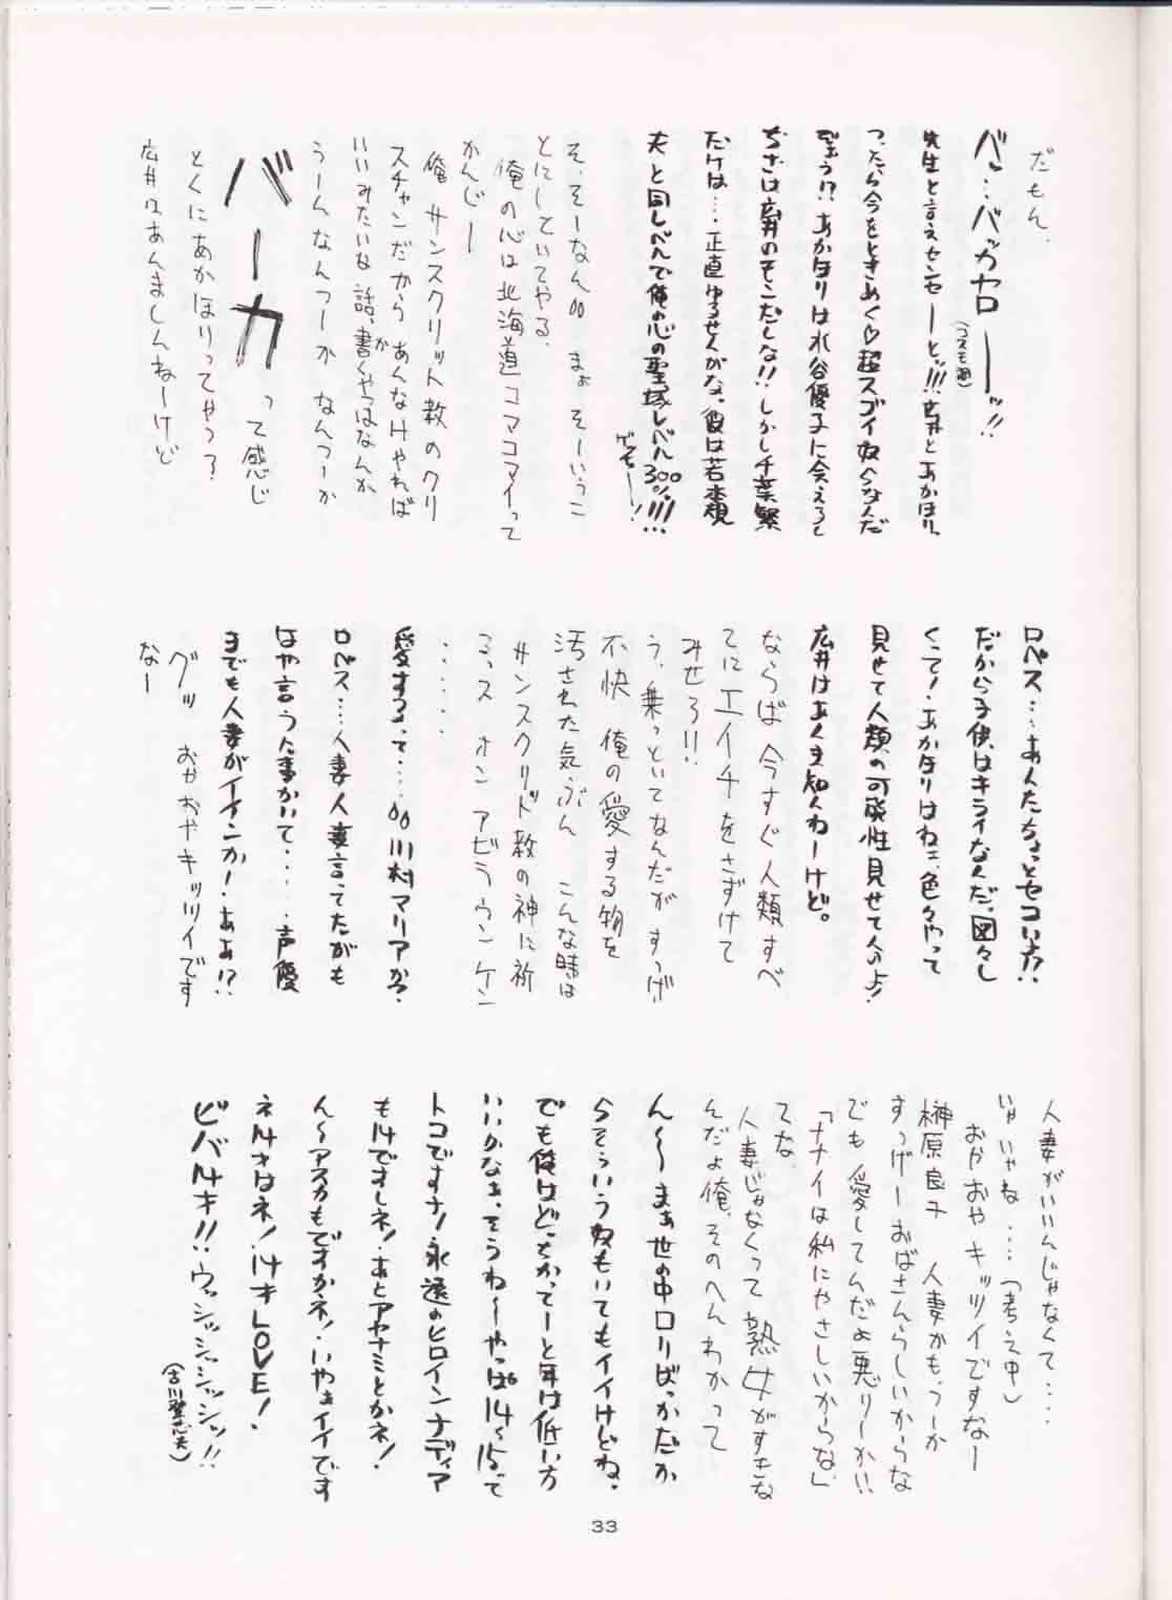 だもん、
バ…バッカヤローーッ!!
先生と言えセンセーーと!!!広井とあかほり、
(つえも通)
つったら今をときめく♡超スゴイ奴らなんだ
ぞぅ!?あかほりは水谷優子に会えるし
ちさは広井のモンだしな!!しかし千葉繁
だけは…正直ゆるせんがな。彼は若本規
夫と同レベルで俺の心の聖域レベル300%!!!…
ゲェーー!
そ、そーなん。まぁ、そーいうこ
とにしといてやる、
俺の心は北海道コマコマイって
かんじー
俺、サンスクリット教のクリ
スチャンだから あんなけやれば
いいみたいな話、書くやつはなんか
が
うーんなんつーか なんつーか
バーカって感じ
とくにあかほりってやつ?
広井はあんましんねーけど
ロペス…あんたちょっとセコい方!?
だから子供はキライなんだ。図々し
くって!あかほりはねェ、色々やって
見せて人類の可能性見せてんのよ!
広井はあんま知んねーけど。
ならば今すぐ人類すべ
てにエイチをさずけて
みせろ!!
う、乗っといてなんだが すっげ
不快 俺の愛する物を
汚された気ぶん こんな時は
サンスクリッド教の神に祈
るっス オン アビラウンケン
・・・・・・
愛するって…。川村マリアか?
ロペス…人妻人妻言ってたがも
はや言うた事かいて…、声優
までも人妻がイインか!あぁ!?
グッ おやおやキッツイです
なー
人妻がいいんじゃなくて…
いや いやね…(考え中)
おやおや キッツイですなー
榊原良子 人妻かも、つーか
すっげーおばさんらしいからな
でも 愛してんだよ悪りーかい
「ナナイは私にやさしいからな」
てな
人妻じゃなくって熟女がすきな
んだよ俺、そのへんわかって
ん〜〜まぁ世の中ロリばっかだか
らそういう奴もいてもイイけどね、
でも俺はどっちかってーと年は低い方
いいかなぁ、そうね〜やっぱ14〜15って
トコですナ!永遠のヒロインナディア
も14ですしネ!あとアヤナミとかネ!
ん〜アスカもですかネ!いやぁイイです
ネ14才はネ!14才LOVE!
ビバ14才!!ウッシッシッシッシッ!!
(古川登志夫)
33